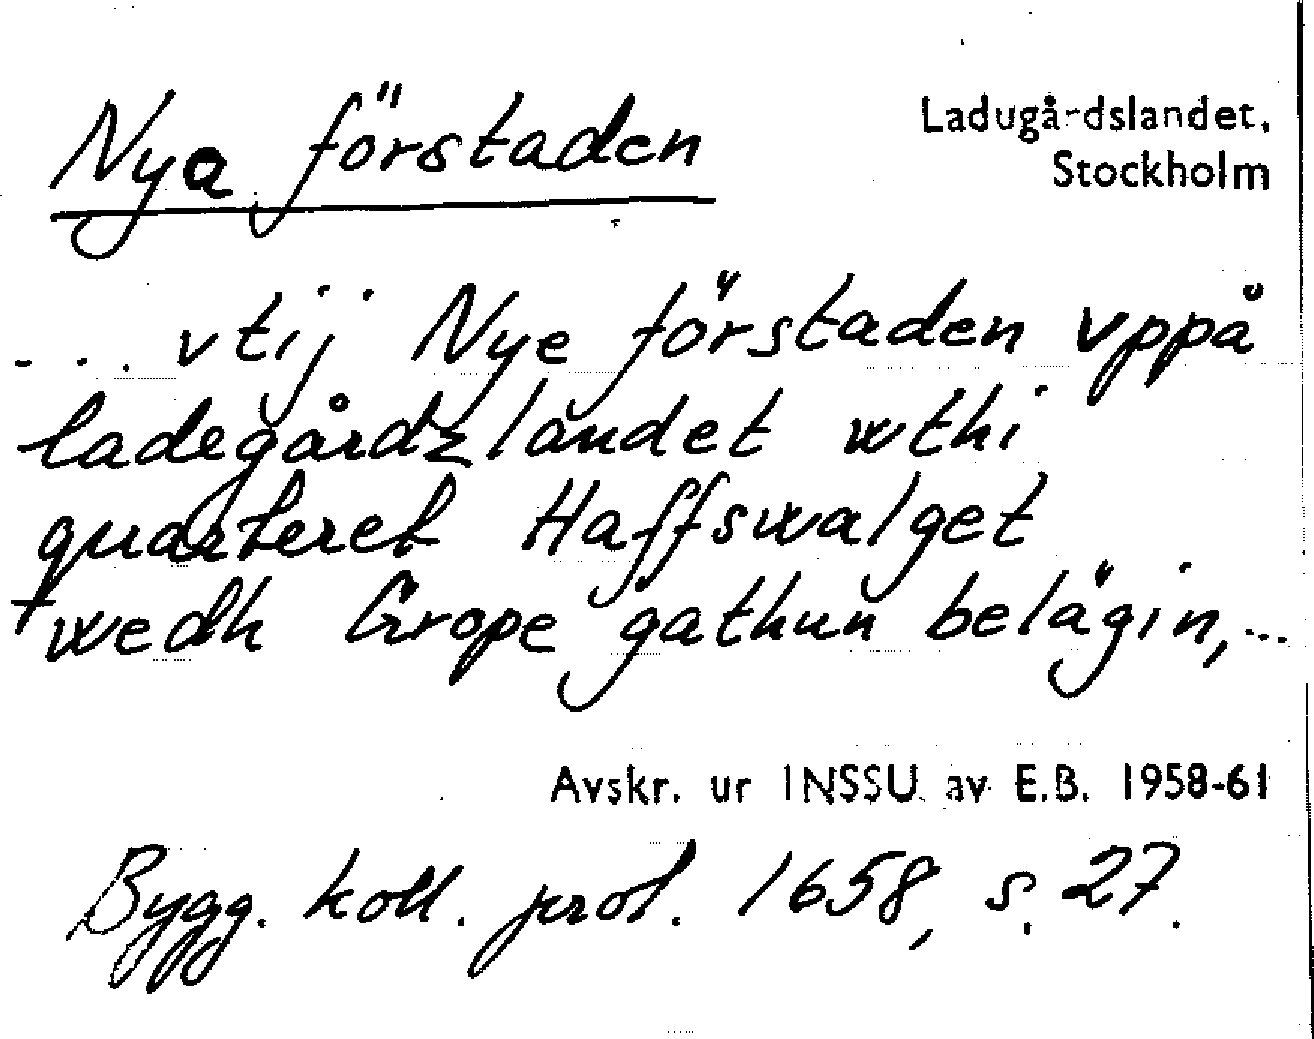 Nya förstaden
Ladugårdslandet,
Stockholm
... vtij Nye förstaden vppå
ladegårdzlandet wthi
quarteret Haffswalget
+wedh Grope gathun belägin,...
Avskr. ur INSSU av E.B. 1958-61
Bygg. koll. prot. 1658, s. 27.